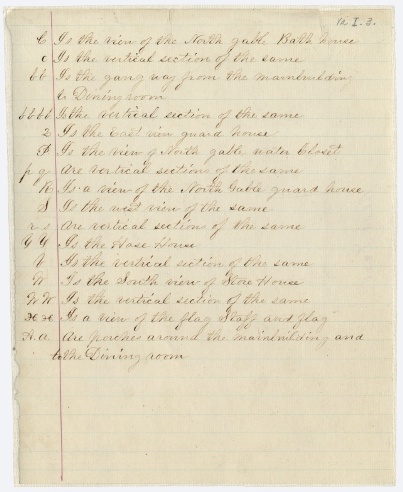 12 I. 3.
C Is the view of the North gable Bath house
c Is the vertical section of the same
bb Is the gang way from the mainbuilding
to Diningroom
bbbb Is the vertical section of the same
2 Is the East view guard house
P Is the view of North gable water Closet
p q Are vertical sections of the same
R Is a view of the North Gable guard house
S Is the west view of the same
r s Are vertical section of the same
Is the Hose House
Is the vertical section of the same
W Is the South view of Store House
W W Is the vertical section of the same
Is a view of the flag Staff and flag
Are porches around the mainbuilding and
the Dining room